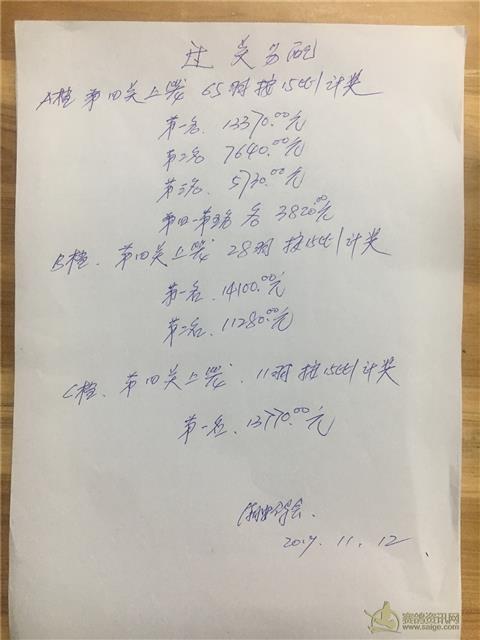 过关分配
A档 第四关上笼 65羽 按15比1计奖
第一名、13370.00元
第二名 7640.00元
第三名、5730.00元
第四—第五名 各 3820.00元
B档、第四关上笼 28羽 按15比1计奖
第一名、14100.00元
第二名、11280.00元
C档、第四关上笼、11羽 按15比1计奖
第一名、13770.00元
2017.11.12
赛鸽资讯网
www.saige.com